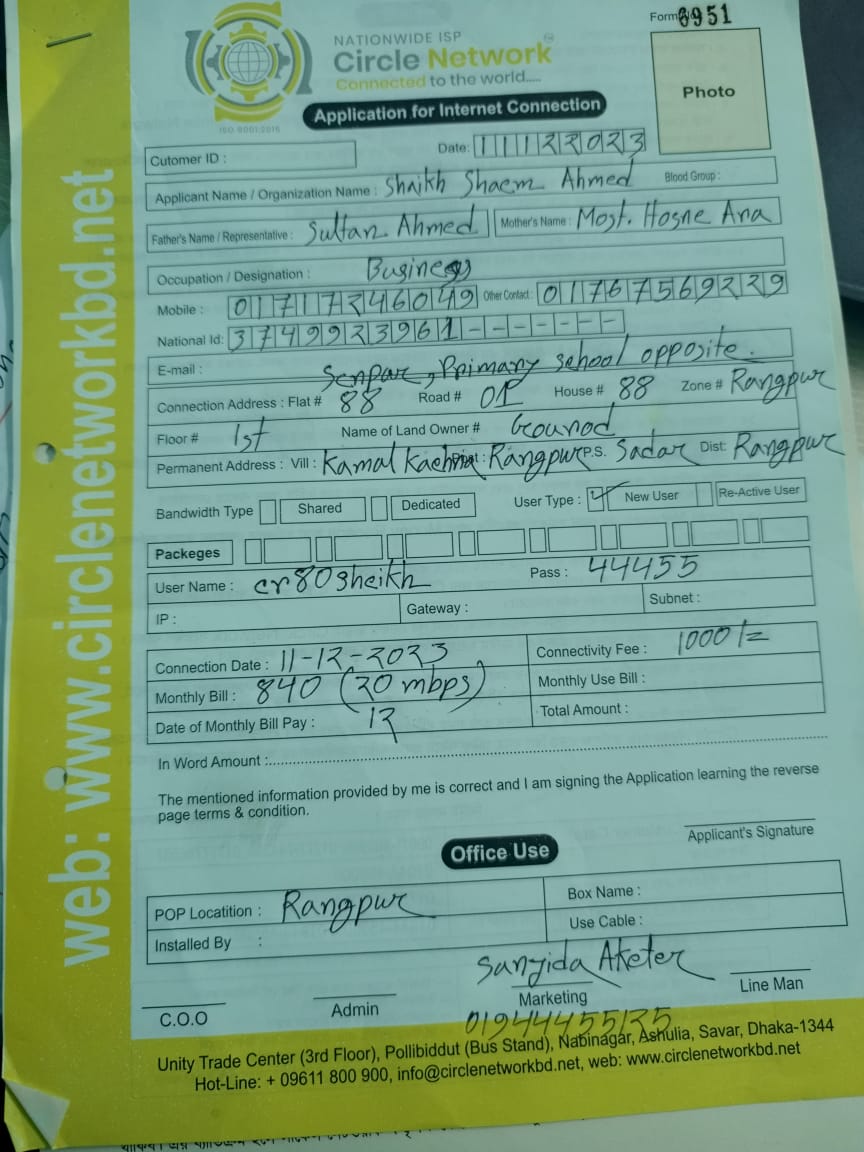 Form 6951
NATIONWIDE ISP
Circle Network
Connected to the world.....
ISO 9001:2015
Application for Internet Connection
Photo
Cutomer ID :
Date: 11122023
Applicant Name / Organization Name : Shaikh Shaem Ahmed Blood Group :
Father's Name / Representative : Sultan Ahmed Mother's Name : Most. Hosne Ara
Occupation / Designation : Business
Mobile : 01717246049 Other Contact : 01767569229
National Id: 3749923961-------
E-mail : Senpar, Primary school opposite.
Connection Address : Flat # 88 Road # 01 House # 88 Zone # Rangpur
Floor # 1st Name of Land Owner # Gounod
Permanent Address : Vill : Kamal Kachna Post : Rangpur P.S. Sadar Dist: Rangpur
Bandwidth Type Shared Dedicated User Type : New User Re-Active User
Packeges
User Name : cr80sheikh Pass : 44455
IP : Gateway : Subnet :
Connection Date : 11-12-2023 Connectivity Fee : 1000/=
Monthly Bill : 840 (20 mbps) Monthly Use Bill :
Date of Monthly Bill Pay : 12 Total Amount :
In Word Amount :
The mentioned information provided by me is correct and I am signing the Application learning the reverse
page terms & condition.
Applicant's Signature
Office Use
POP Locatition : Rangpur Box Name :
Installed By : Use Cable :
Sanjida Akter
C.O.O Admin Marketing Line Man
01944455135
Unity Trade Center (3rd Floor), Pollibiddut (Bus Stand), Nabinagar, Ashulia, Savar, Dhaka-1344
Hot-Line: + 09611 800 900, info@circlenetworkbd.net, web: www.circlenetworkbd.net
web: www.circlenetworkbd.net